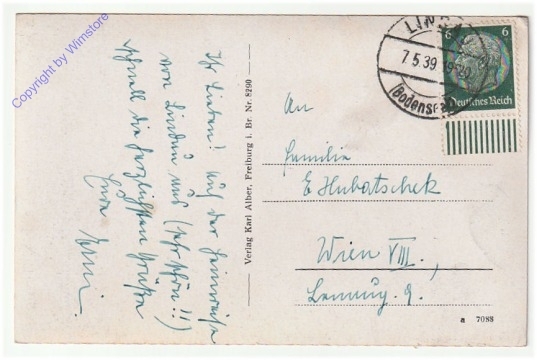 Ihr Lieben! Auf der Heimreise
von Lindau aus (sehr schön!!)
schnell die herzlichsten Grüße
Eure Erni.
Verlag Karl Alber, Freiburg i. Br. Nr. 8290
LINDAU
7.5.39
(Bodensee)
6 6
Deutsches Reich
An
Familie
E Hubatschek
Wien VIII.,
9.
a 7088
Copyright by Wimstore